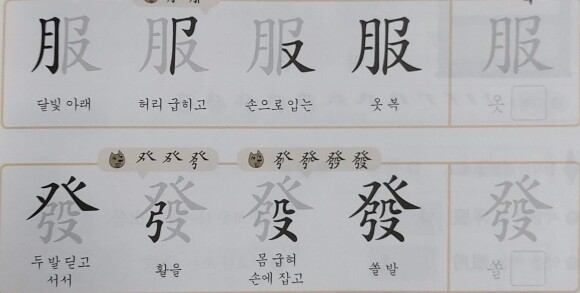 服 服 服 服 服
달빛 아래 허리 굽히고 손으로 입는 옷 복 옷
發 發 發 發 發
두 발 딛고 서서 활을 몸 굽혀 손에 잡고 쏠 발 쏠